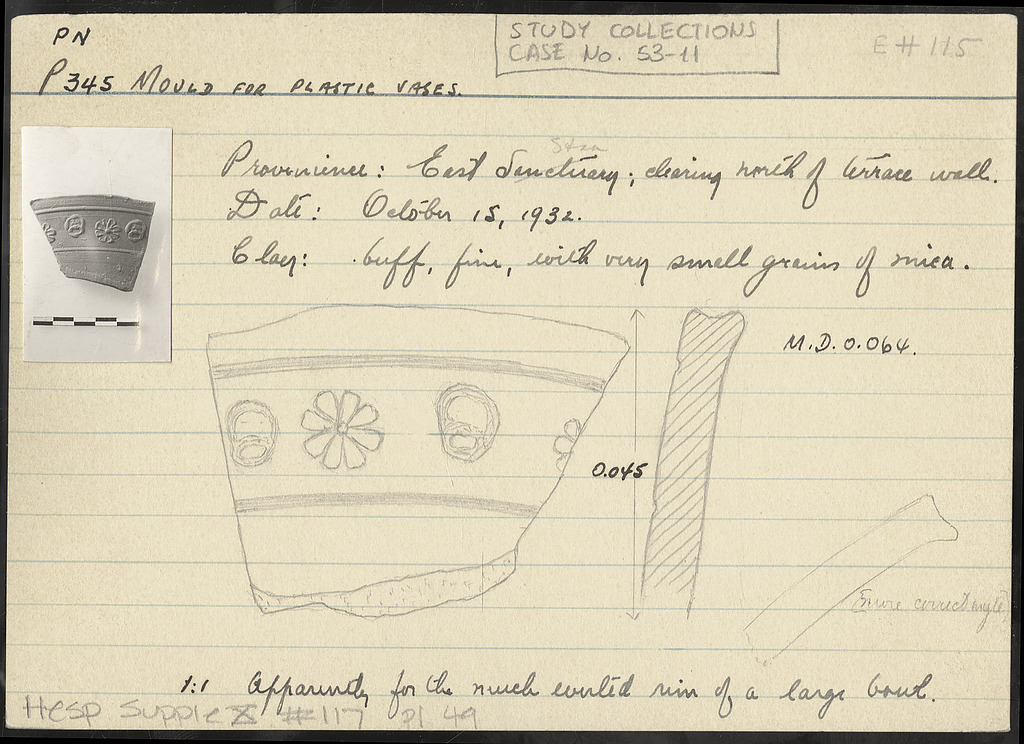 PN
STUDY COLLECTIONS
CASE No. 53-11
E#115
P 345 MOULD FOR PLASTIC VASES.
Stoa
Provenience: East Sanctuary; clearing north of terrace wall.
Date: October 15, 1932.
Clay: buff, fine, with very small grains of mica.
M.D. 0.064.
0.045
[more correct angle]
1:1 Apparently for the much everted rim of a large bowl.
Hesp Supple X #117 pl 49